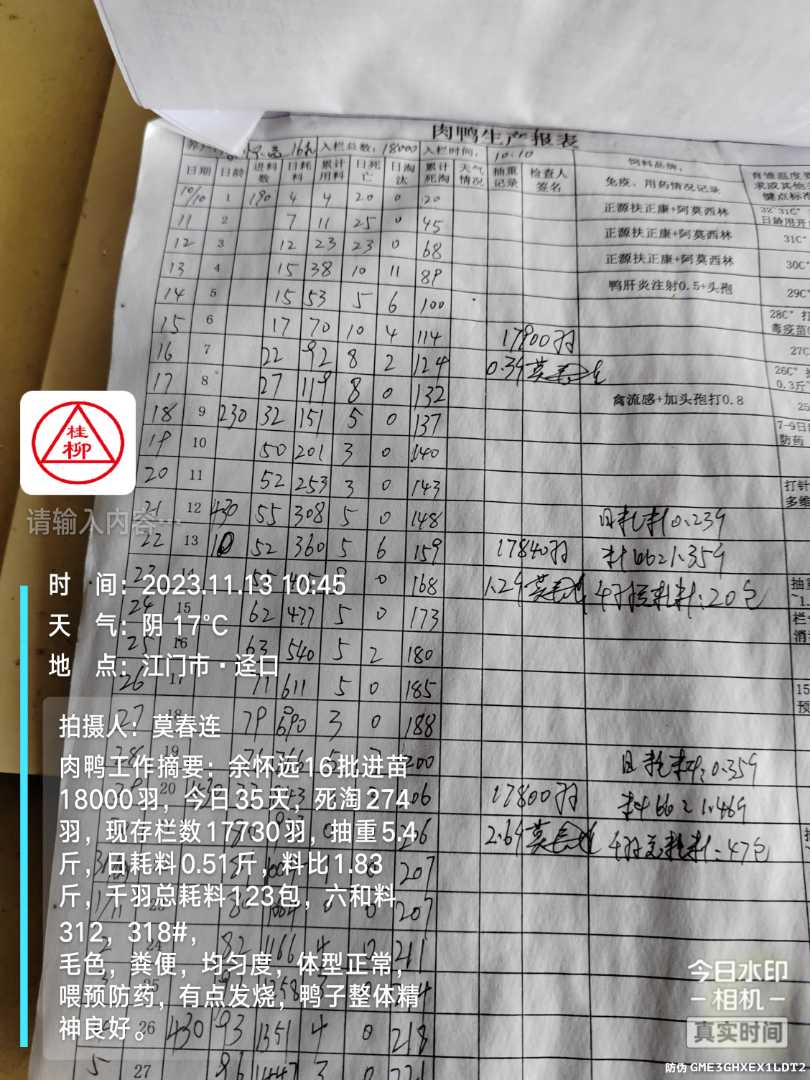 肉鸭生产报表
16批 入栏总数：18000 入栏时间：10.10 饲料品牌：
日期 日龄 进料数 日耗料 累计用料 日死亡 日淘汰 累计死淘 天气情况 抽重记录 检查人签名 免疫、用药情况记录
10/10 1 190 4 4 20 0 20 正源扶正康+阿莫西林
11 2 7 11 25 0 45 正源扶正康+阿莫西林 31C°
12 3 12 23 23 0 68 正源扶正康+阿莫西林 30C°
13 4 15 38 10 11 89 鸭肝炎注射0.5+头孢 29C°
14 5 15 53 5 6 100 28C°
15 6 17 70 10 4 114 17900羽 27C
16 7 22 92 8 2 124 0.39 莫春连 26C°
17 8 27 119 8 0 132 禽流感+加头孢打0.8
18 9 230 32 151 5 0 137
19 10 50 201 3 0 140
20 11 52 253 3 0 143
21 12 430 55 308 5 0 148 日耗料0.239
22 13 10 52 360 5 6 159 17840羽 料比1.359
23 14 168 1.29 莫春连 千羽总耗料：20包
24 15 62 477 5 0 173
25 16 63 540 5 2 180
26 17 71 611 5 0 185
27 18 79 690 3 0 188
28 19 200 日耗料：0.359
20 206 17800羽 料比1.469
206 2.69 莫春连 千羽总耗料：47包
207
1/11 207
24 82 1166 4 211
26 430 93 1351 4 0 218
5 27 96 1447 3 0 221
桂柳
请输入内容…
时 间：2023.11.13 10:45
天 气：阴 17℃
地 点：江门市·迳口
拍摄人：莫春连
肉鸭工作摘要：余怀远16批进苗
18000羽，今日35天，死淘274
羽，现存栏数17730羽，抽重5.4
斤，日耗料0.51斤，料比1.83
斤，千羽总耗料123包，六和料
312，318#，
毛色，粪便，均匀度，体型正常，
喂预防药，有点发烧，鸭子整体精
神良好。
今日水印
相机
真实时间
防伪 GME3GHXEX1LDT2